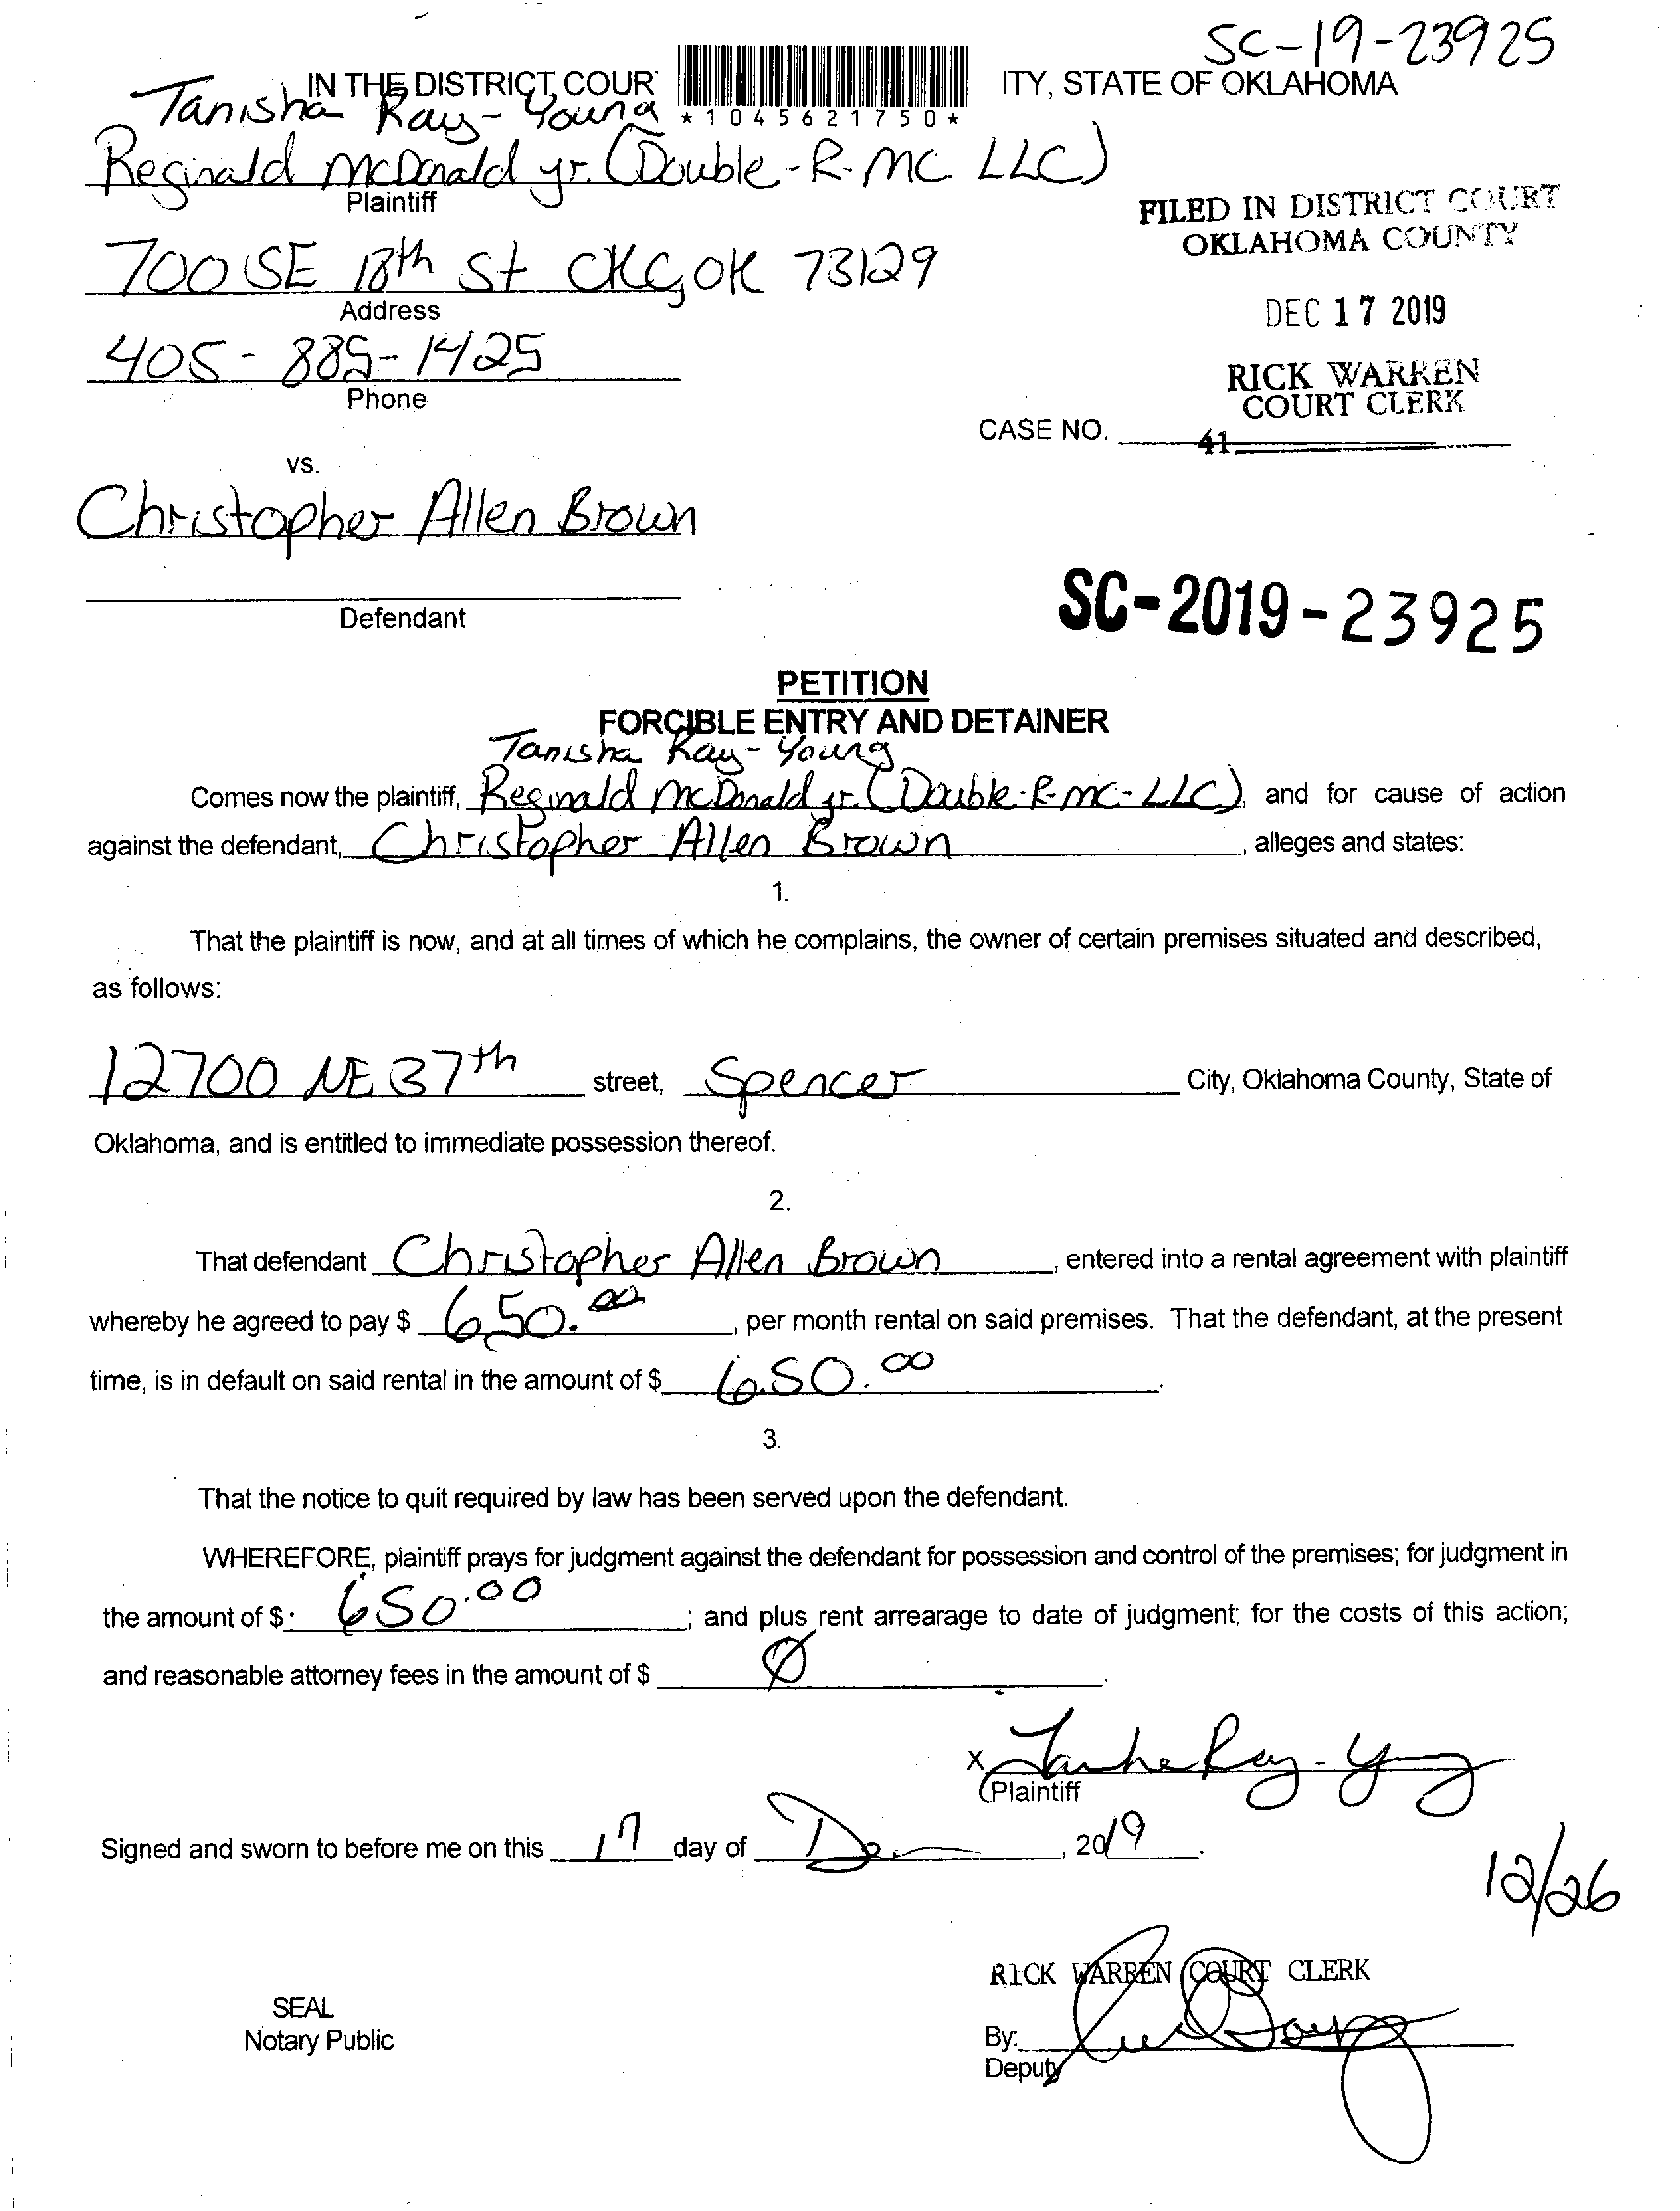 SC-19-23925
IN THE DISTRICT COUR ITY, STATE OF OKLAHOMA
*1045621750*
Tanisha Ray-Young
Reginald McDonald jr. (Double-R-MC LLC)
Plaintiff
FILED IN DISTRICT COURT
OKLAHOMA COUNTY
700 SE 18th St OKC, OK 73129
Address
DEC 17 2019
405-885-1425
Phone
RICK WARREN
COURT CLERK
CASE NO.
41
vs.
Christopher Allen Brown
Defendant
SC-2019-23925
PETITION
FORCIBLE ENTRY AND DETAINER
Tanisha Ray-Young
Comes now the plaintiff, Reginald McDonald jr. (Double-R-MC-LLC), and for cause of action
against the defendant, Christopher Allen Brown, alleges and states:
1.
That the plaintiff is now, and at all times of which he complains, the owner of certain premises situated and described,
as follows:
12700 NE 37th street, Spencer City, Oklahoma County, State of
Oklahoma, and is entitled to immediate possession thereof.
2.
That defendant Christopher Allen Brown, entered into a rental agreement with plaintiff
whereby he agreed to pay $ 650.00, per month rental on said premises. That the defendant, at the present
time, is in default on said rental in the amount of $ 650.00.
3.
That the notice to quit required by law has been served upon the defendant.
WHEREFORE, plaintiff prays for judgment against the defendant for possession and control of the premises; for judgment in
the amount of $ 650.00; and plus rent arrearage to date of judgment; for the costs of this action;
and reasonable attorney fees in the amount of $ Ø.
x Tanisha Ray-Young
Plaintiff
Signed and sworn to before me on this 17 day of Dec, 2019.
12/26
RICK WARREN COURT CLERK
SEAL
Notary Public
By:
Deputy